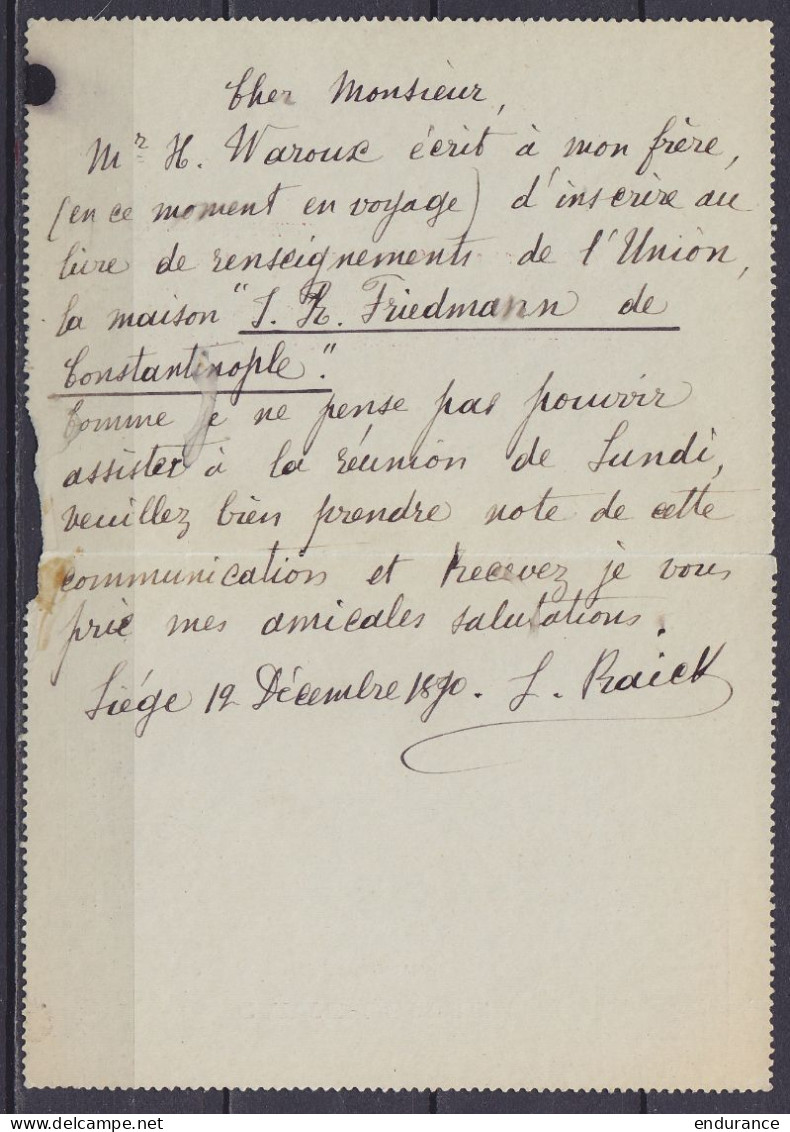 Cher Monsieur,
Mr H. Waroux écrit à mon frère,
(en ce moment en voyage) d'inscrire au
livre de renseignements de l'Union,
la maison "S. R. Friedmann de
Constantinople".
Comme je ne pense pas pouvoir
assister à la réunion de Lundi,
veuillez bien prendre note de cette
communication et recevez je vous
prie mes amicales salutations.
Liége 12 Décembre 1890. L. Raick
endurance